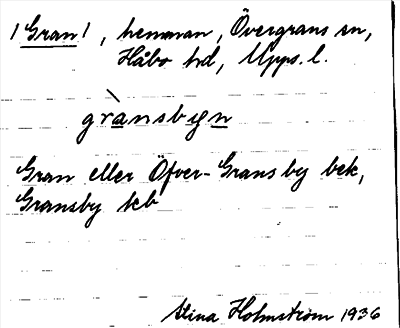 /Gran/, hemman, Övergrans sn,
Håbo hd, Upps. l.
grànsbyn
Gran eller Öfver-Gransby bek,
Gransby kb
Stina Holmström 1936